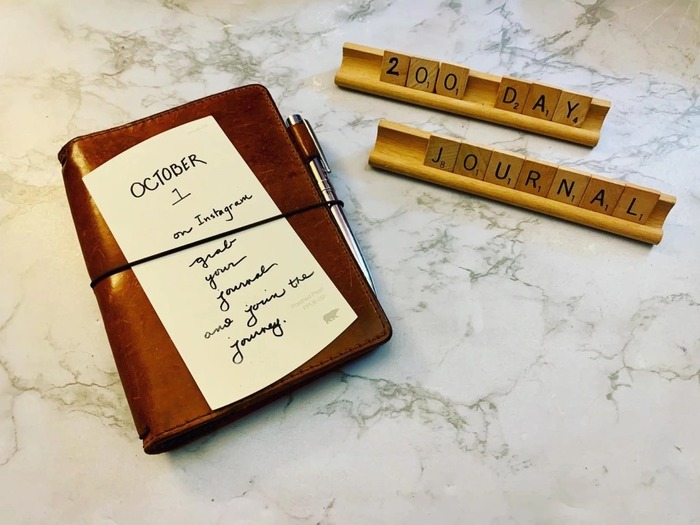 OCTOBER
1
on Instagram
grab
your
journal
and join the
journey.
200 DAY
JOURNAL